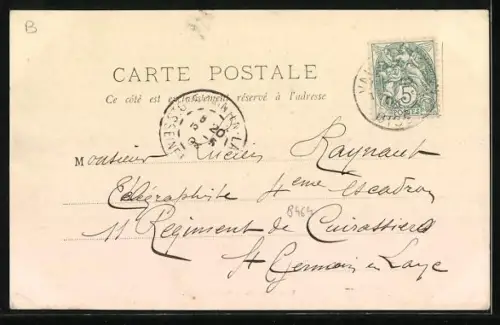 B
CARTE POSTALE
Ce côté est exclusivement réservé à l'adresse
5
Monsieur Raynaut
Télégraphiste 4eme escadron
11 Régiment de Cuirassiers
B464
St Germain en Laye